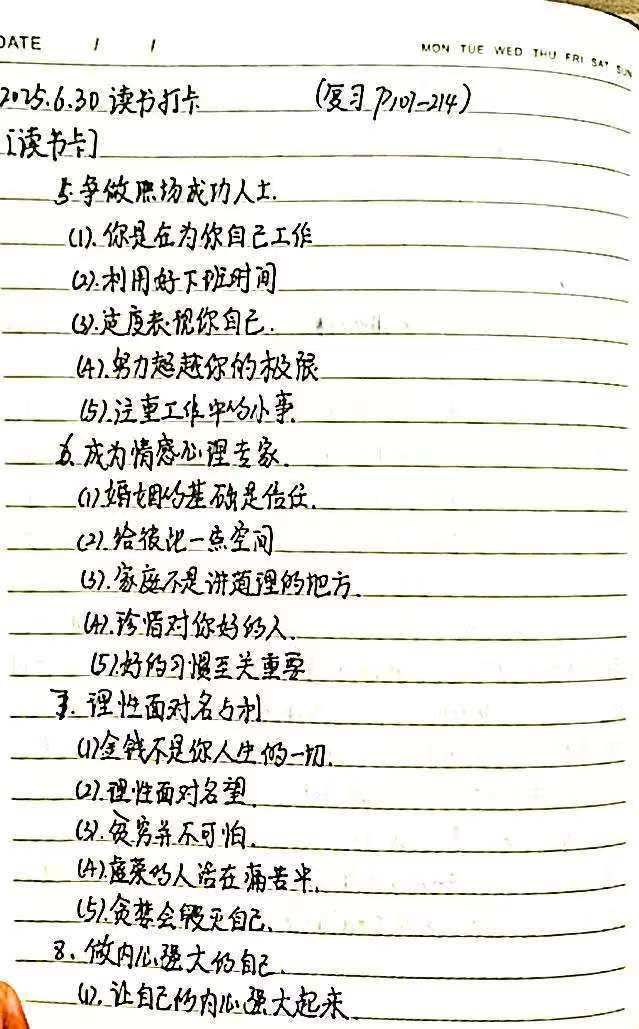 DATE / / MON TUE WED THU FRI SAT SUN
2025.6.30 读书打卡 (复习 P107-214)
[读书卡]
5. 争做职场成功人士.
(1). 你是在为你自己工作
(2). 利用好下班时间
(3). 适度表现你自己.
(4). 努力超越你的极限
(5). 注重工作中的小事.
6. 成为情感心理专家.
(1) 婚姻的基础是信任.
(2). 给彼此一点空间
(3). 家庭不是讲道理的地方.
(4). 珍惜对你好的人.
(5) 好的习惯至关重要
7. 理性面对名与利
(1) 金钱不是你人生的一切.
(2). 理性面对名望.
(3). 贫穷并不可怕.
(4). 虚荣的人活在痛苦中.
(5). 贪婪会毁灭自己.
8. 做内心强大的自己.
(1). 让自己的内心强大起来